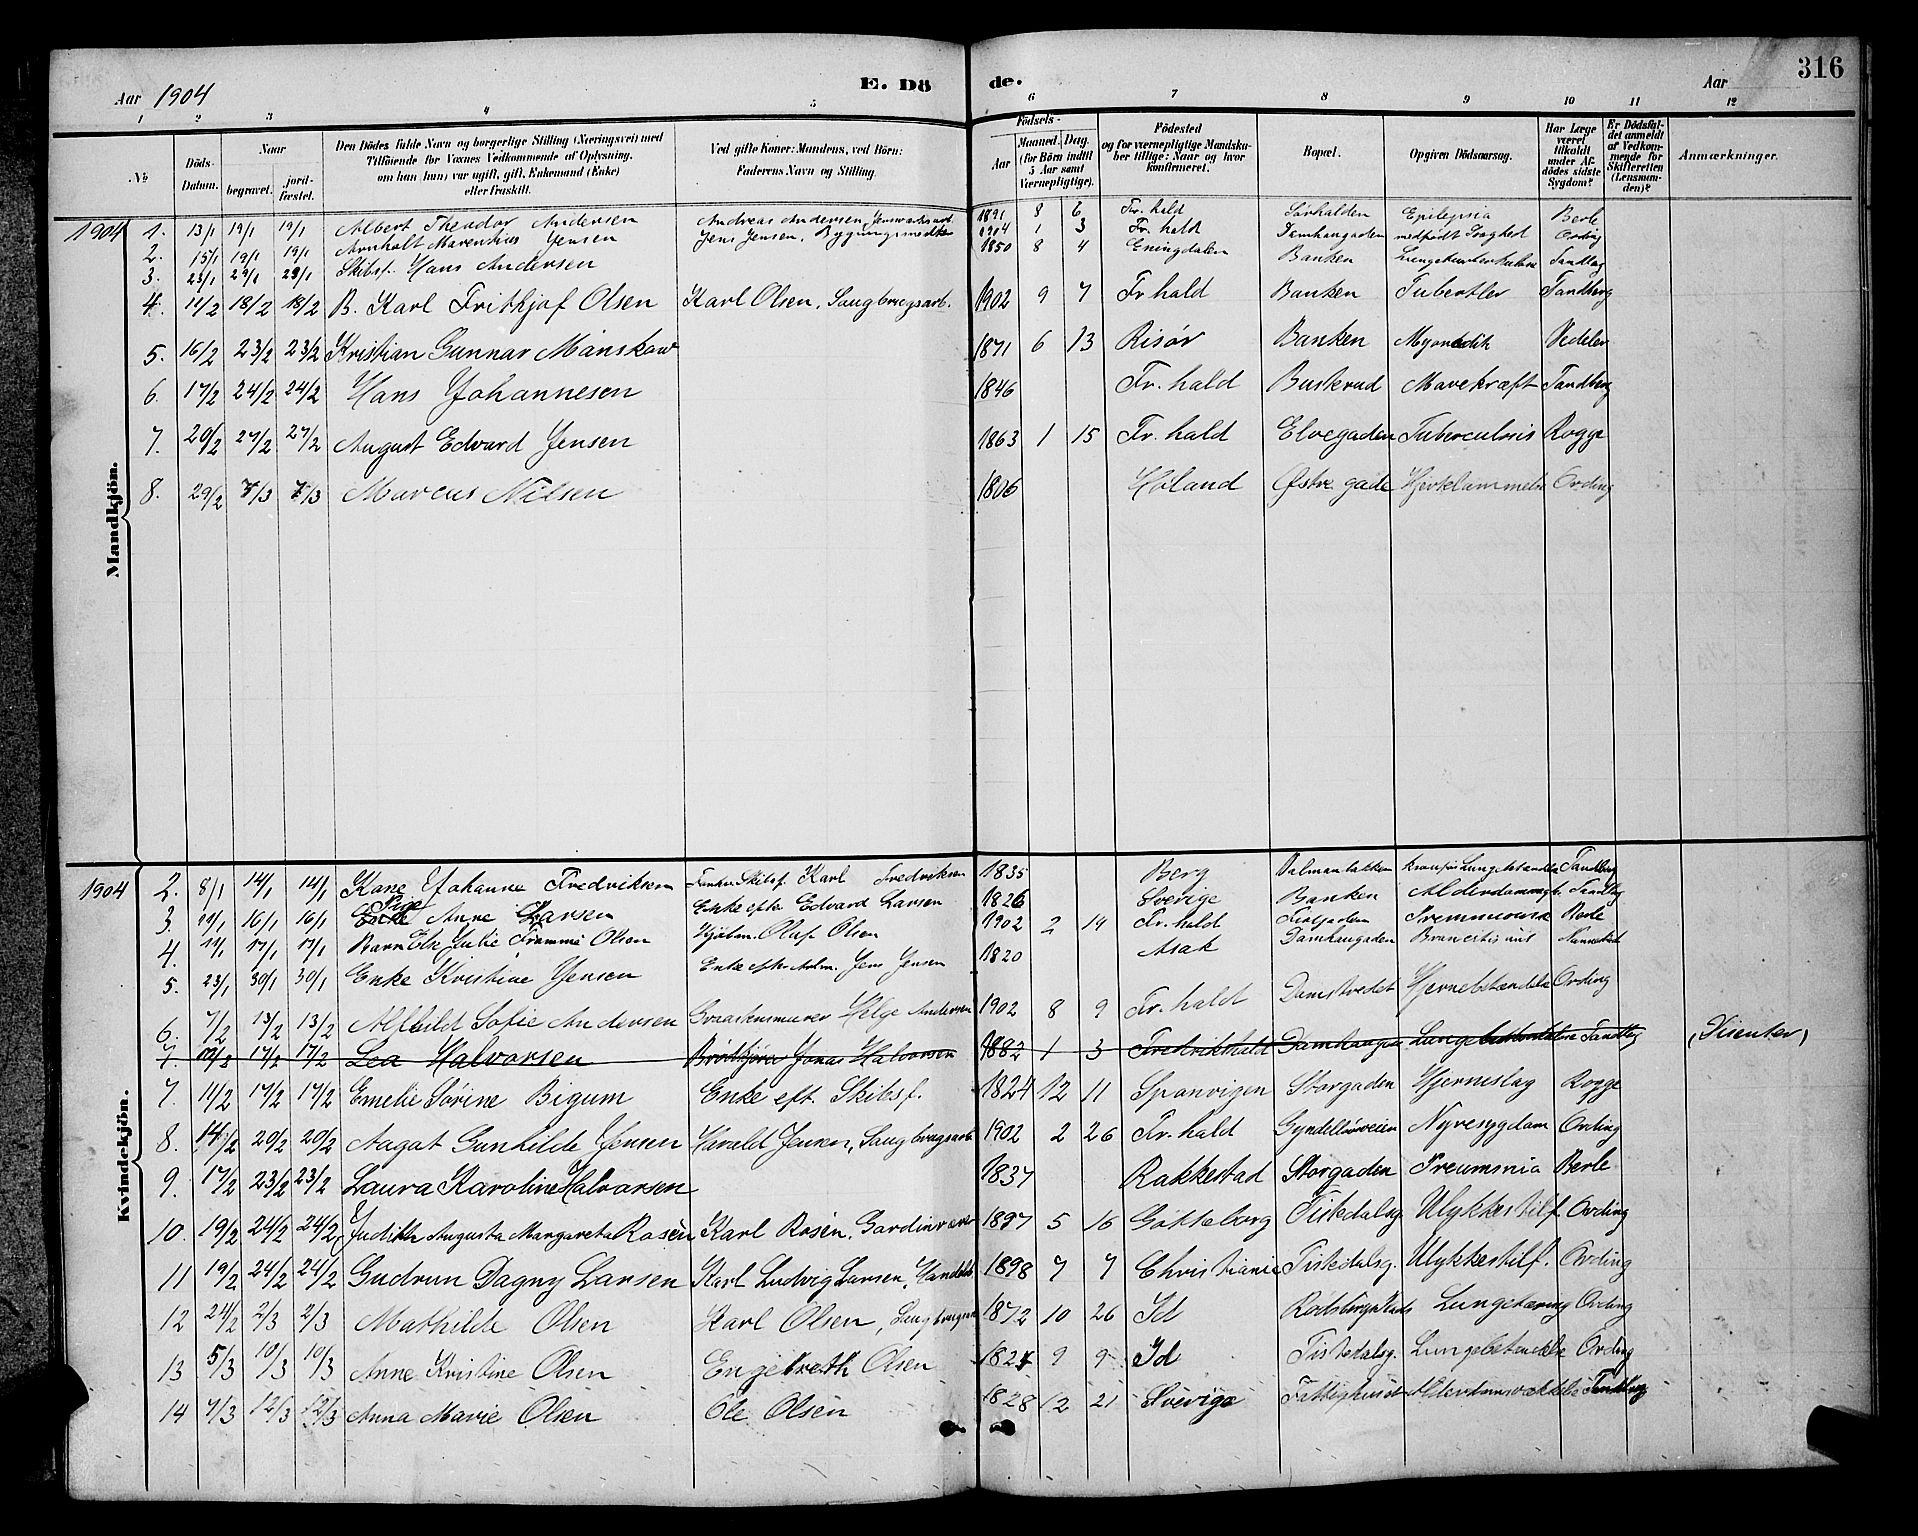 Aar 1904 E. Dö de. Aar 316
1 2 3 4 5 6 7 8 9 10 11 12
№ Döds-Datum. Naar begravet. jordfæstet. Den Dödes fulde Navn og borgerlige Stilling (Næringsvei) med Tilföiende for Voxnes Vedkommende af Oplysning, om han (hun) var ugift, gift, Enkemand (Enke) eller fraskilt. Ved gifte Koner: Mandens, ved Börn: Faderens Navn og Stilling. Födsels- Aar Maaned. Dag. (for Börn indtil 5 Aar samt Værnepligtige). Födested og for værnepligtige Mandskaber tillige: Naar og hvor konfirmeret. Bopæl. Opgiven Dödsaarsag. Har Læge været tilkaldt under Afdödes sidste Sygdom? Er Dödsfaldet anmeldt af Vedkommende for Skifteretten (Lensmanden)? Anmærkninger.
Mandkjön.
1904 1. 13/1 19/1 19/1 Albert Theodor Andersen Andreas Andersen 1891 8 6 Fr. hald Sørhalden Epilepsia Berle
2. 15/1 19/1 19/1 Arnholt Marentius Jensen Jens Jensen 1904 1 3 Fr. hald Damhaugaden medfødt Svaghed Ording
3. 23/1 29/1 29/1 Skibsf. Hans Andersen 1850 8 4 Enningdalen Banken Tandberg
4. 11/2 18/2 18/2 B. Karl Frithjof Olsen Karl Olsen, Saugbrugsarb. 1902 9 7 Fr. hald Banken Tubertler Tandberg
5. 16/2 23/2 23/2 Kristian Gunnar Mánskow 1871 6 13 Risör Banken Vedeler
6. 17/2 24/2 24/2 Hans Johannesen 1846 Fr. hald Buskrud Mavekræft Tandberg
7. 20/2 27/2 27/2 August Edvard Jensen 1863 1 15 Fr. hald Elvegaden Tuberculosis Rogge
8. 29/2 7/3 7/3 Marcus Nilsen 1806 Høland Østre gade Hjerteslammelse Ording
Kvindekjön.
1904 2. 8/1 14/1 14/1 Kone Johanne Fredriksen Skibsf. Karl Fredriksen 1835 Berg Tandberg
3. 11/1 16/1 16/1 Pige Enke Anne Larsen Enke efter Edvard Larsen 1826 Sverige Banken Tandberg
4. 11/1 17/1 17/1 Barn Else Julie Framme Olsen Olaf Olsen 1902 2 19 Fr. hald Berle
5. 23/1 30/1 30/1 Enke Kristine Jensen Enke efter Jens Jensen 1820 Asak Damhaugaden
6. 7/2 13/2 13/2 Alfhild Sofie Andersen Helge Andersen 1902 8 9 Fr. hald Damstredet Ording
7. 17/2 17/2 Lea Halvorsen Jonas Halvorsen 1882 1 3 Fredrikshald Tandberg (Disenter)
7. 11/2 17/2 17/2 Emelie Sørine Bigum Enke eft. Skibsf. 1824 12 11 Spanvigen Storgaden Hjerneslag Rogge
8. 14/2 20/2 20/2 Aagat Gunhilde Jensen Harald Jensen, Saugbrugsarb 1902 2 26 Fr. hald Nyresygdom Ording
9. 17/2 23/2 23/2 Laura Karoline Halvorsen 1837 Rakkestad Storgaden Preumonia Berle
10. 19/2 24/2 24/2 Judith Augusta Margareta Rosén Karl Rosén, Gardinvæver 1897 5 16 Gøtteborg Tistedalsg Ulykkestilf Ording
11 19/2 24/2 24/2 Gudrun Dagny Larsen Karl Ludvig Larsen, 1898 7 7 Christiania Tistedalsg. Ulykkestilf. Ording
12 24/2 2/3 2/3 Mathilde Olsen Karl Olsen, 1872 10 26 Id Lungetæring Ording
13 5/3 10/3 10/3 Anne Kristine Olsen Engebreth Olsen 1824 9 9 Id Tistedalsg. Lungebetændelse Ording
14 7/3 12/3 12/3 Anna Marie Olsen Ole Olsen 1828 12 21 Sverige Fattighuset Tandberg